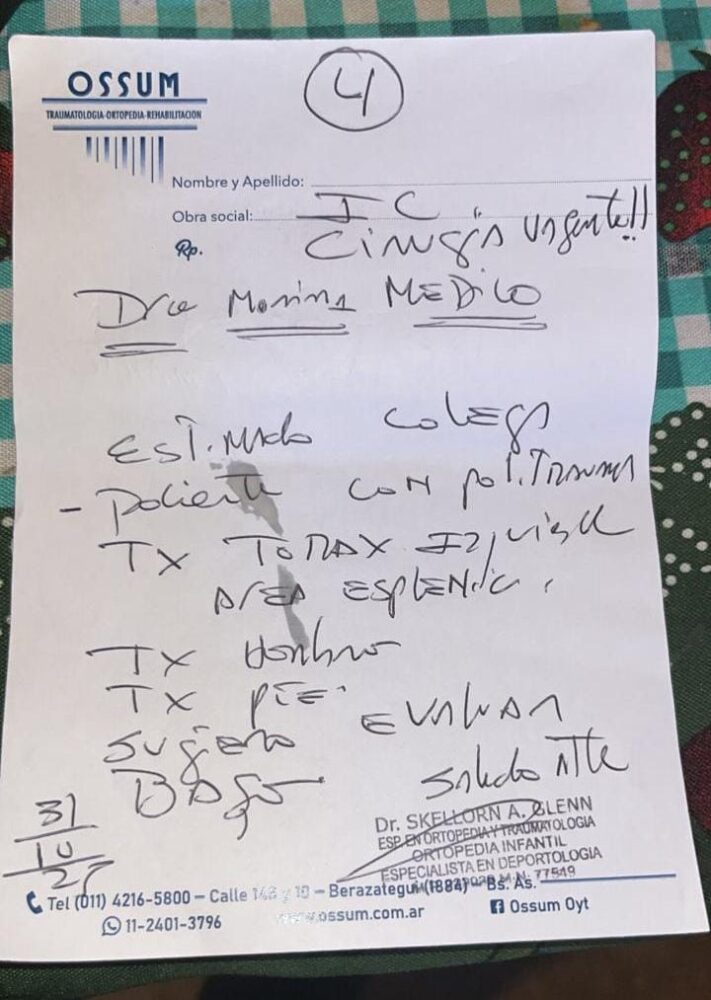 OSSUM
TRAUMATOLOGIA-ORTOPEDIA-REHABILITACION
4
Nombre y Apellido:
Obra social: IC
Rp. Cirugía Urgente!!
Dra MEDICO
ESTIMADO colega
- paciente con politrauma
TX TORAX Izquierdo
AREA ESPLENICA
TX Hombro
TX PIE. EVALUAR
Sugiero
BAZO Saludo Atte
31
10
Dr. SKELLORN A. GLENN
ESP. EN ORTOPEDIA Y TRAUMATOLOGIA
ORTOPEDIA INFANTIL
ESPECIALISTA EN DEPORTOLOGIA
M.N. 77549
Tel (011) 4216-5800 – Calle 148 y 10 – Berazategui (1884) – Bs. As.
11-2401-3796 www.ossum.com.ar Ossum Oyt